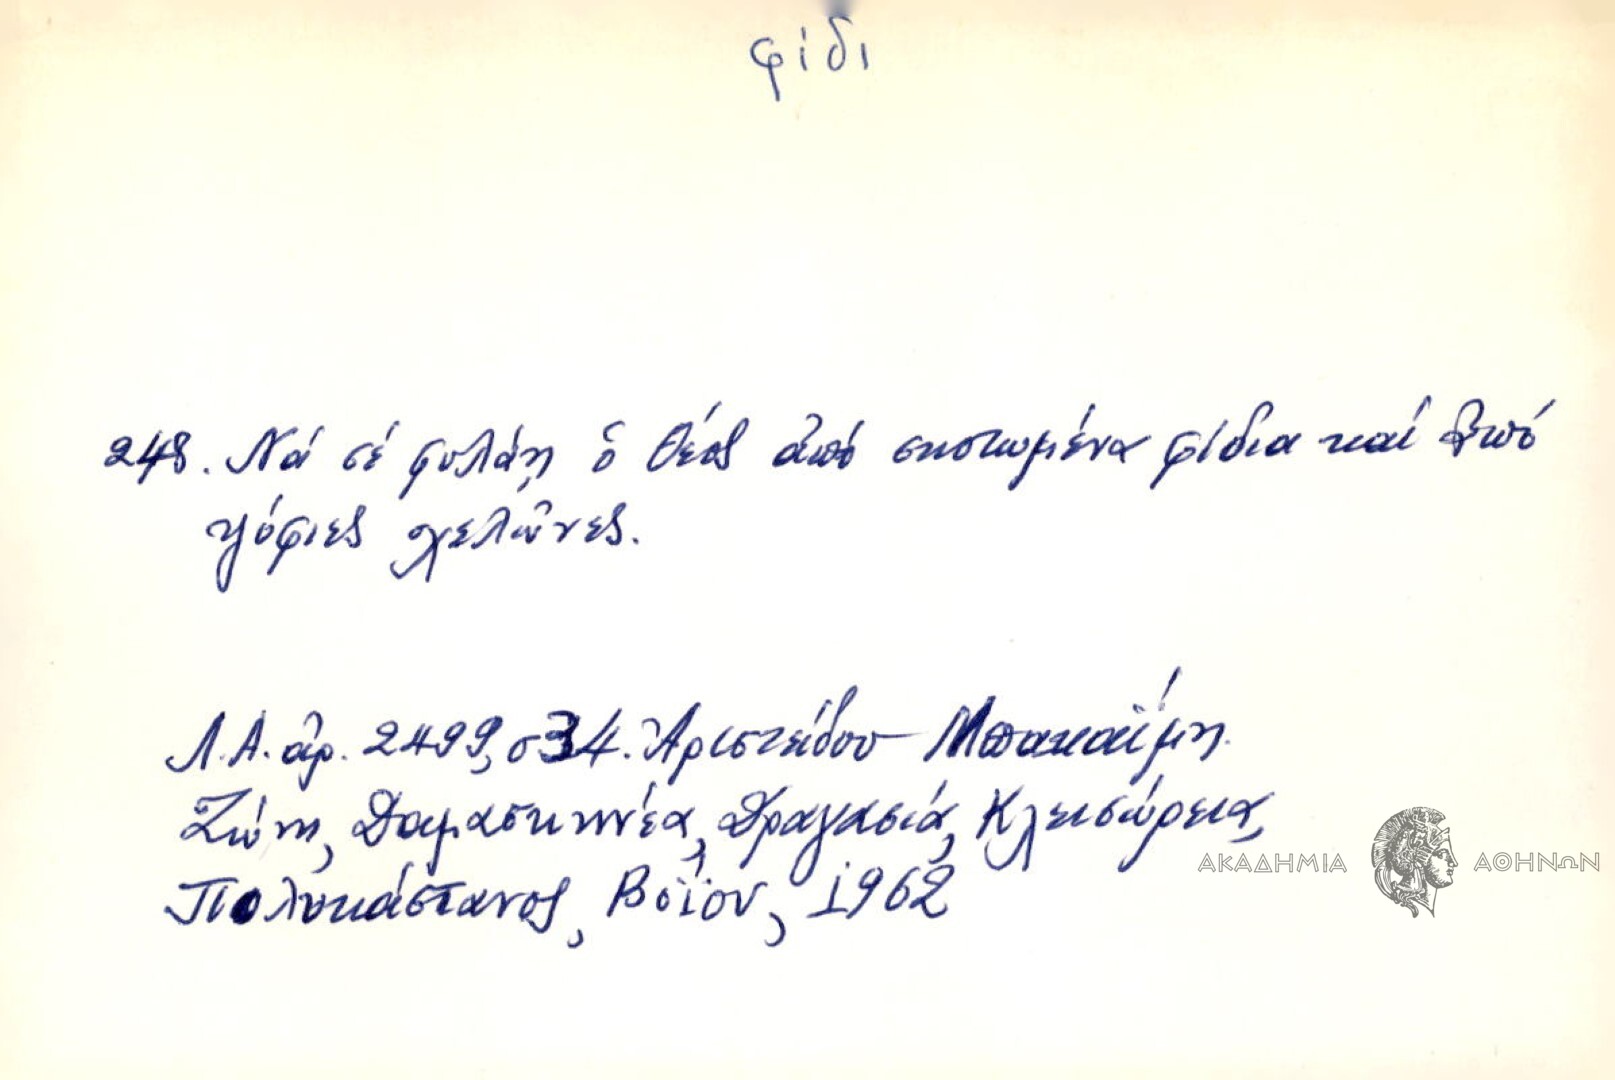 φίδι
248. Νά σέ φυλάῃ ὁ Θεός ἀπό σηκωμένα φίδια καί ἀπό
ψόφιες χελῶνες.
Λ.Α. ἀρ. 2499, σ34. Ἀριστείδου Μπακαΐμη
Ζώνη, Δαμασκηνέα, Δραγασιά, Κλεισώρεια,
Πολυκάστανος, Βοΐου, 1962
ΑΚΑΔΗΜΙΑ ΑΘΗΝΩΝ